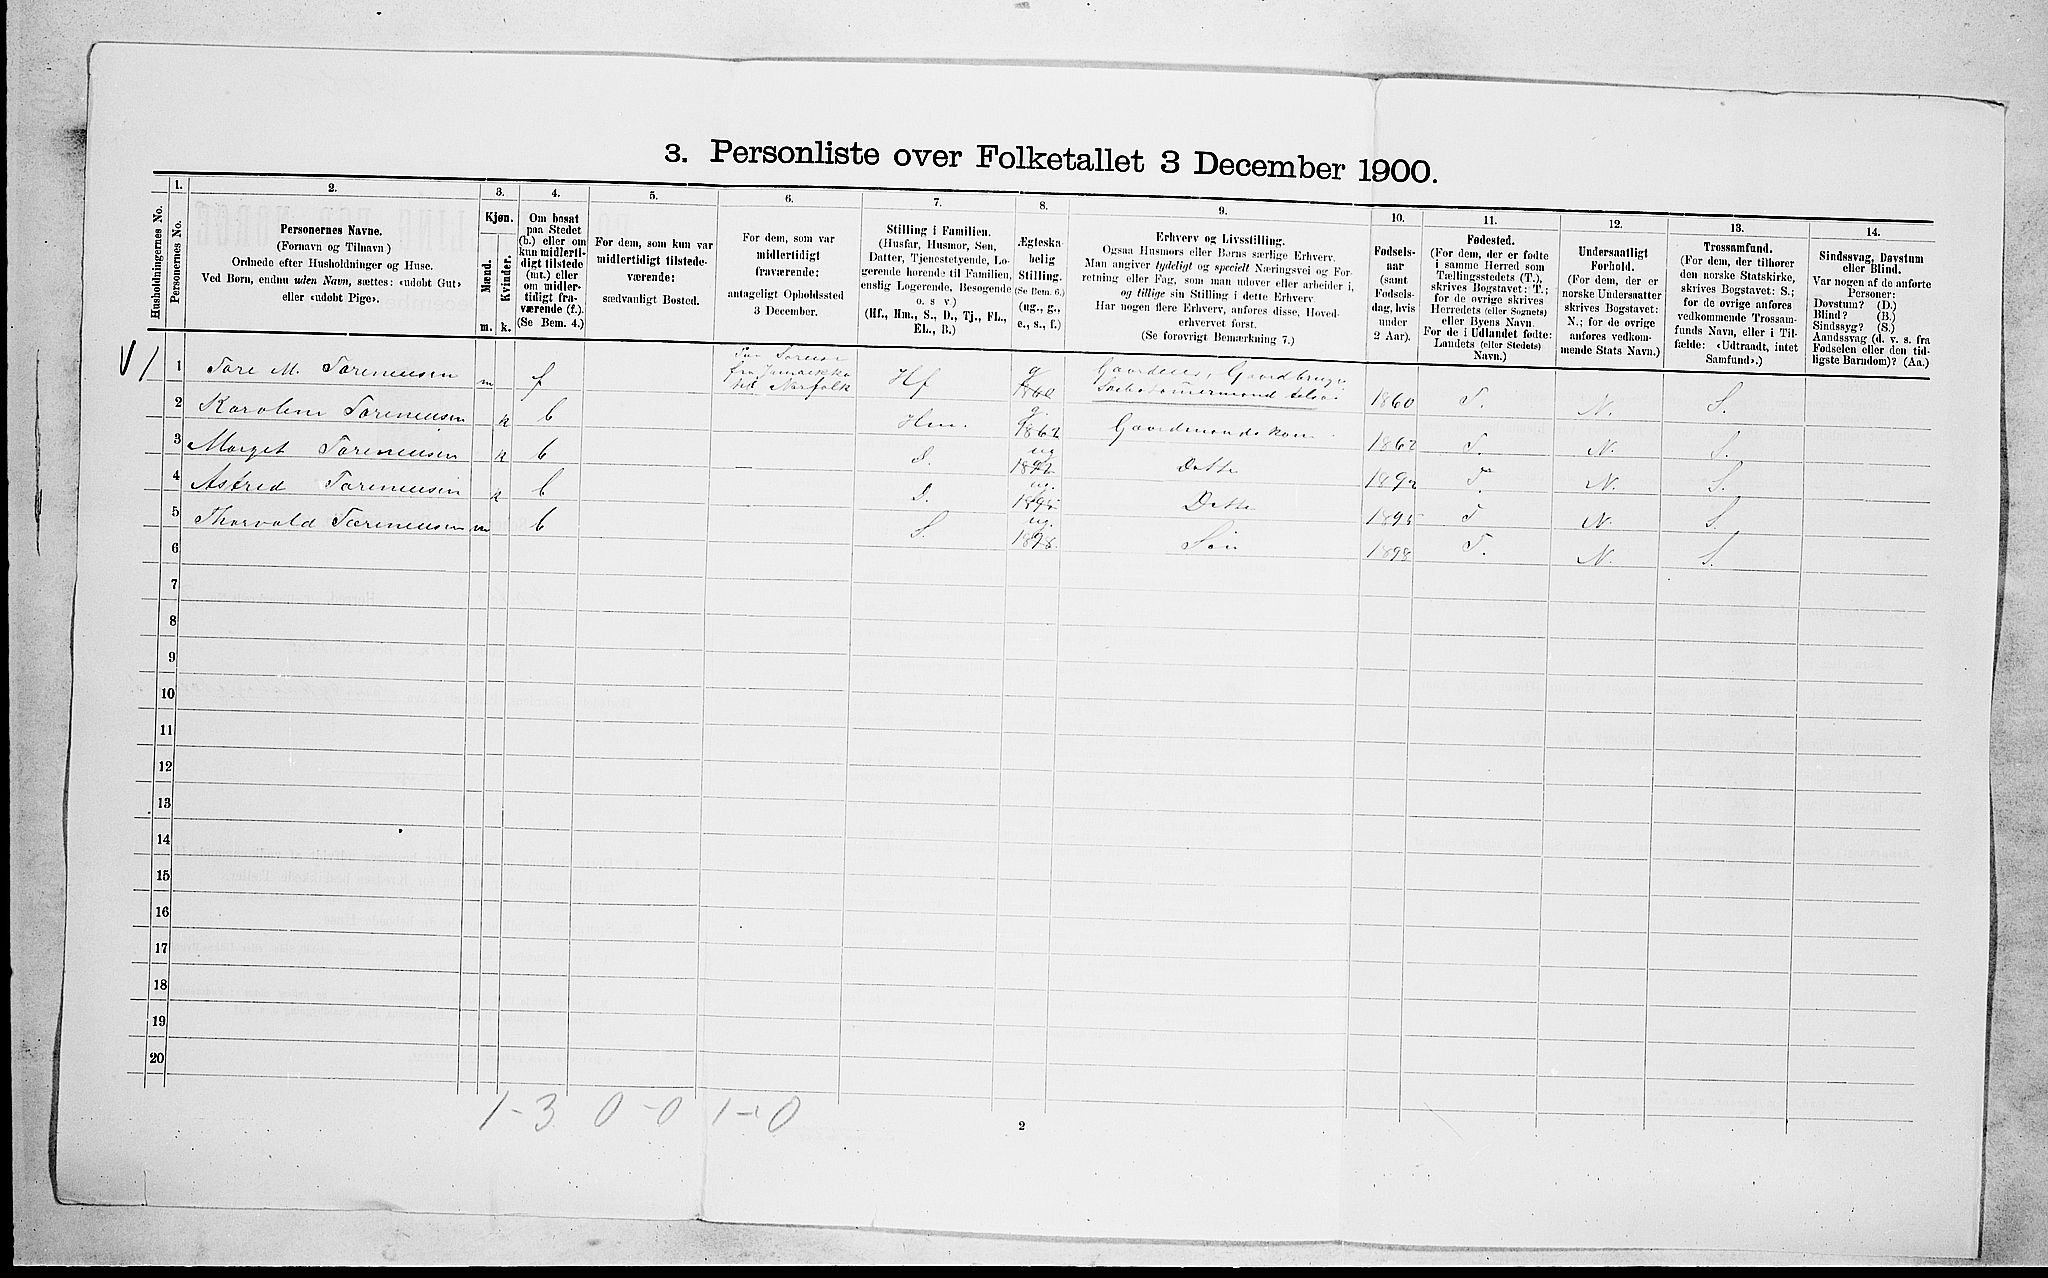 3. Personliste over Folketallet 3 December 1900.
Husholdningernes No.
1.
Personernes No.
2.
Personernes Navne.
(Fornavn og Tilnavn.)
Ordnede efter Husholdninger og Huse.
Ved Børn, endnu uden Navn, sættes: «udøbt Gut»
eller «udøbt Pige».
3.
Kjøn.
Mænd.
Kvinder.
m. k.
4.
Om bosat
paa Stedet
(b.) eller om
kun midlerti-
digt tilstede
(mt.) eller
om midler-
tidigt fra-
værende (f.).
(Se Bem. 4.)
5.
For dem, som kun var
midlertidigt tilstede-
værende:
sædvanligt Bosted.
6.
For dem, som var
midlertidigt
fraværende:
antageligt Opholdssted
3 December.
7.
Stilling i Familien.
(Husfar, Husmor, Søn,
Datter, Tjenestetyende, Lo-
gerende hørende til Familien,
enslig Logerende, Besøgende
o. s. v.)
(Hf., Hm., S., D., Tj., FL.,
EL., B.)
8.
Ægteska-
belig
Stilling.
(Se Bem. 6.)
(ug., g.,
e., s., f.)
9.
Erhverv og Livsstilling.
Ogsaa Husmors eller Børns særlige Erhverv.
Man angiver tydeligt og specielt Næringsvei og For-
retning eller Fag, som man udøver eller arbeider i,
og tillige sin Stilling i dette Erhverv.
Har nogen flere Erhverv, anføres disse, Hoved-
erhvervet først.
(Se forøvrigt Bemærkning 7.)
10.
Fødsels-
aar
(samt
Fødsels-
dag, hvis
under
2 Aar).
11.
Fødested.
(For dem, der er fødte
i samme Herred som
Tællingsstedets (T.),
skrives Bogstavet: T.;
for de øvrige skrives
Herredets (eller Sognets)
eller Byens Navn.
For de i Udlandet fødte:
Landets (eller Stedets)
Navn.)
12.
Undersaatligt
Forhold.
(For dem, der er
norske Undersaatter
skrives Bogstavet:
N.; for de øvrige
anføres vedkom-
mende Stats Navn.)
13.
Trossamfund.
(For dem, der tilhører
den norske Statskirke,
skrives Bogstavet: S.;
for de øvrige anføres
vedkommende Trossam-
funds Navn, eller i Til-
fælde: «Udtraadt, intet
Samfund».)
14.
Sindssvag, Døvstum
eller Blind.
Var nogen af de anførte
Personer:
Døvstum? (D.)
Blind? (B.)
Sindssyg? (S.)
Aandssvag (d. v. s. fra
Fødselen eller den tid-
ligste Barndom)? (Aa.)
1 Tore M. Toreneusen m f fra Jamaikka til Norfolk Hf g 1860 1860 T. N. S.
2 Karoline Toreneusen k b Hm. g. 1862 Gaardmandskone 1862 T. N. S.
3 Marget Toreneusen k b d. ug 1892 Dette 1892 T. N. S.
4 Astred Toreneusen k b D. ug. 1895 Dette 1895 T N. S.
5 Thorvald Toreneusen m b S. ug. 1898. Søn 1898 T. N. S.
6
7
8
9
10
11
12
13
14
15
16
17
18
19
20
1-3 0-0 1-0
2